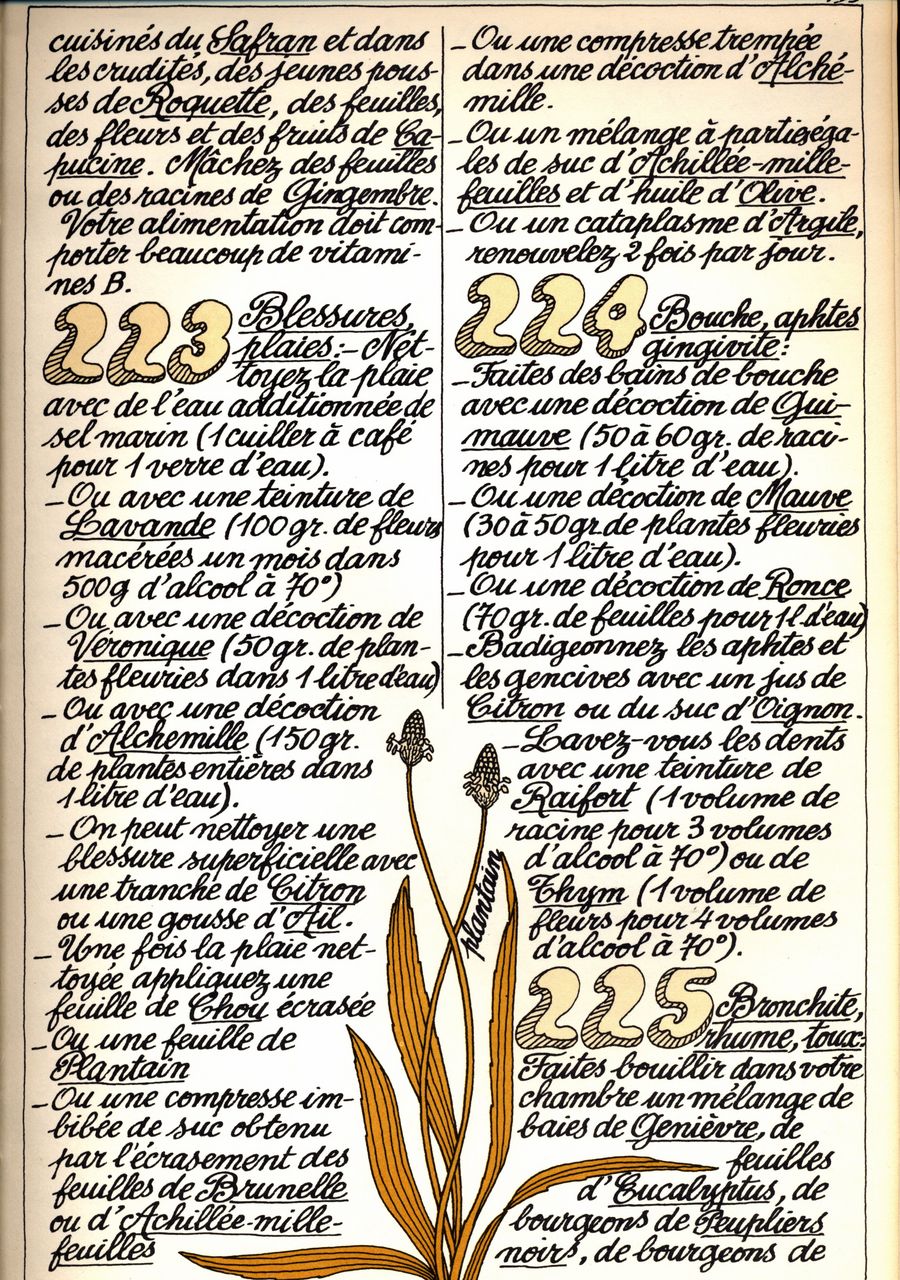 cuisinés du Safran et dans
les crudités, des jeunes pous-
ses de Roquette, des feuilles,
des fleurs et des fruits de Ca-
pucine. Mâchez des feuilles
ou des racines de Gingembre.
Votre alimentation doit com-
porter beaucoup de vitami-
nes B.
223 Blessures,
plaies:- Net-
toyez la plaie
avec de l'eau additionnée de
sel marin (1 cuiller à café
pour 1 verre d'eau).
_Ou avec une teinture de
Lavande (100gr. de fleurs
macérées un mois dans
500g d'alcool à 70°)
_Ou avec une décoction de
Véronique (50gr. de plan-
tes fleuries dans 1 litre d'eau)
_Ou avec une décoction
d'Alchemille (150gr.
de plantes entières dans
1 litre d'eau).
_On peut nettoyer une
blessure superficielle avec
une tranche de Citron
ou une gousse d'Ail.
_Une fois la plaie net-
toyée appliquez une
feuille de Chou écrasée
_Ou une feuille de
Plantain
_Ou une compresse im-
bibée de suc obtenu
par l'écrasement des
feuilles de Brunelle
ou d'Achillée-mille-
feuilles
_Ou une compresse trempée
dans une décoction d'Alché-
mille.
_Ou un mélange à parties éga-
les de suc d'Achillée-mille-
feuilles et d'huile d'Olive.
_Ou un cataplasme d'Argile,
renouvelez 2 fois par jour.
224 Bouche, aphtes
gingivite:
_Faites des bains de bouche
avec une décoction de Gui-
mauve (50 à 60gr. de raci-
nes pour 1 litre d'eau).
_Ou une décoction de Mauve
(30 à 50gr. de plantes fleuries
pour 1 litre d'eau).
_Ou une décoction de Ronce
(70gr. de feuilles pour 1l. d'eau)
_Badigeonnez les aphtes et
les gencives avec un jus de
Citron ou du suc d'Oignon.
_Lavez-vous les dents
avec une teinture de
Raifort (1 volume de
racine pour 3 volumes
d'alcool à 70°) ou de
Thym (1 volume de
fleurs pour 4 volumes
d'alcool à 70°).
225 Bronchite,
rhume, toux:
Faites bouillir dans votre
chambre un mélange de
baies de Genièvre, de
feuilles
d'Eucalyptus, de
bourgeons de Peupliers
noirs, de bourgeons de
plantain